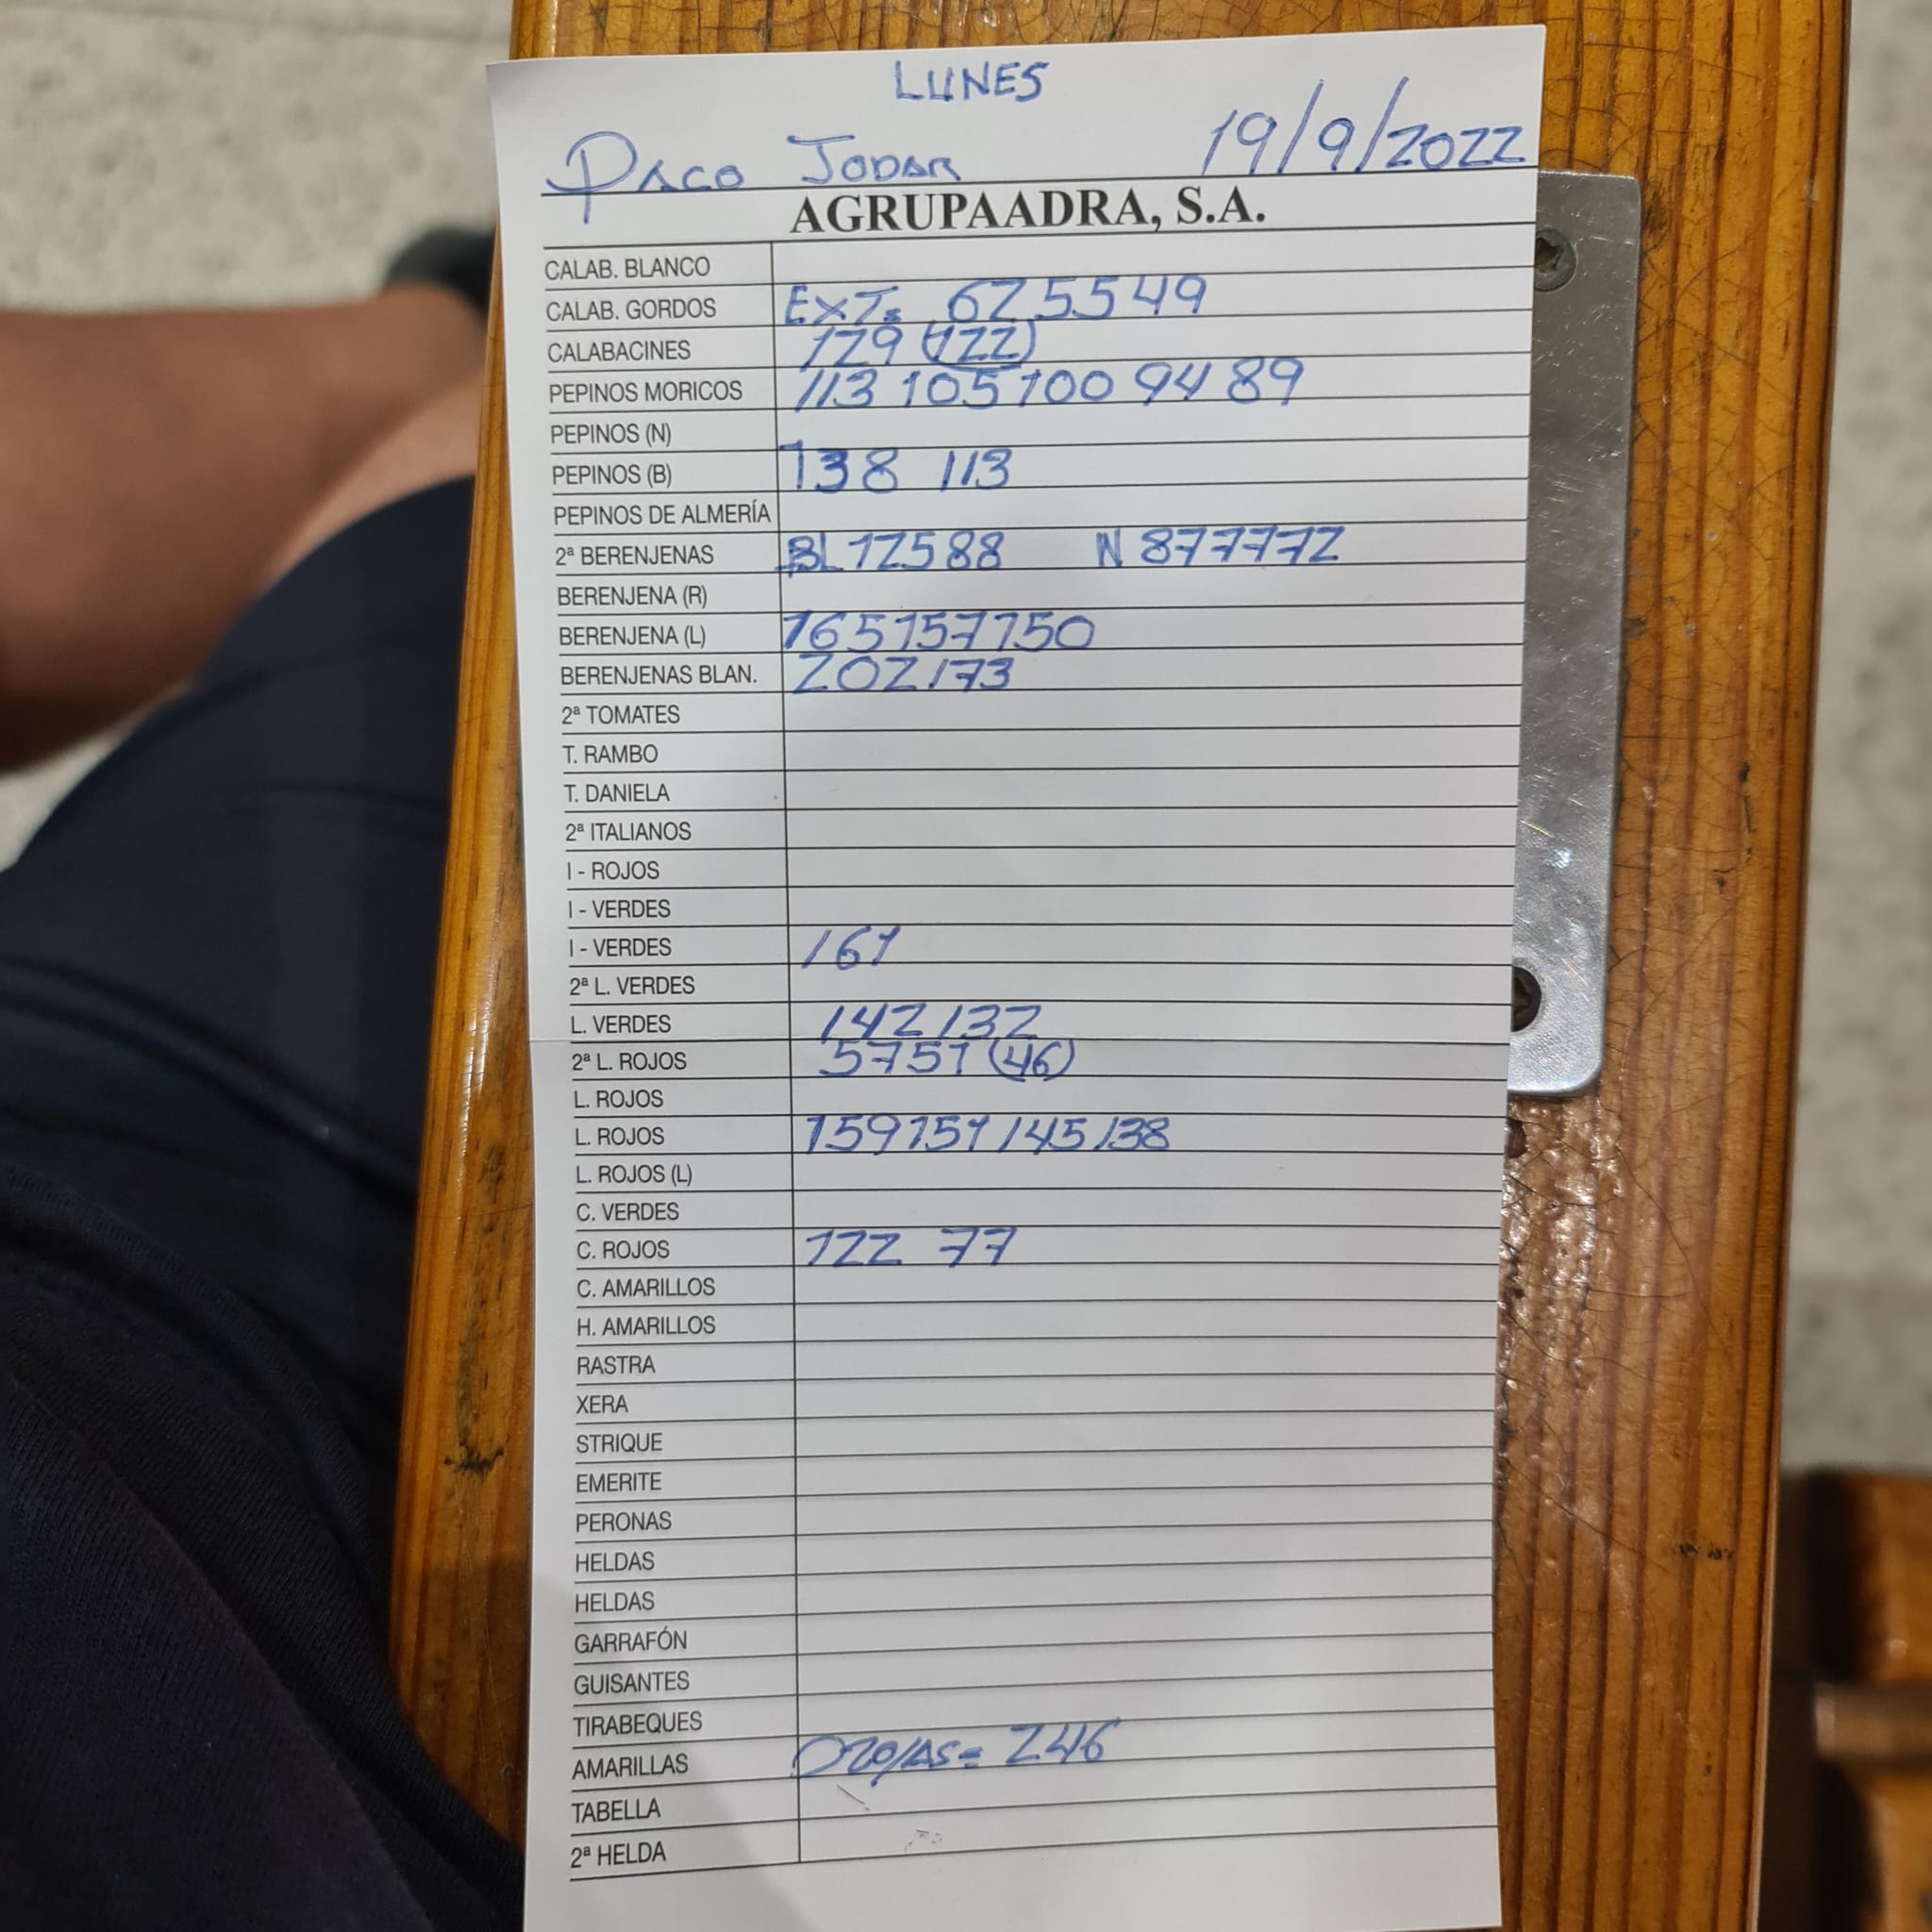 LUNES
PACO JODAR 19/9/2022
AGRUPAADRA, S.A.
CALAB. BLANCO
CALAB. GORDOS EXT= 625549
CALABACINES 129 (122)
PEPINOS MORICOS 113 105 100 94 89
PEPINOS (N)
PEPINOS (B) 138 113
PEPINOS DE ALMERÍA
2ª BERENJENAS BL 12588 N 877772
BERENJENA (R)
BERENJENA (L) 165157150
BERENJENAS BLAN. 202173
2ª TOMATES
T. RAMBO
T. DANIELA
2ª ITALIANOS
I - ROJOS
I - VERDES
I - VERDES 161
2ª L. VERDES
L. VERDES 142132
2ª L. ROJOS 5751 (46)
L. ROJOS
L. ROJOS 159151145138
L. ROJOS (L)
C. VERDES
C. ROJOS 122 77
C. AMARILLOS
H. AMARILLOS
RASTRA
XERA
STRIQUE
EMERITE
PERONAS
HELDAS
HELDAS
GARRAFÓN
GUISANTES
TIRABEQUES
AMARILLAS = 246
TABELLA
2ª HELDA